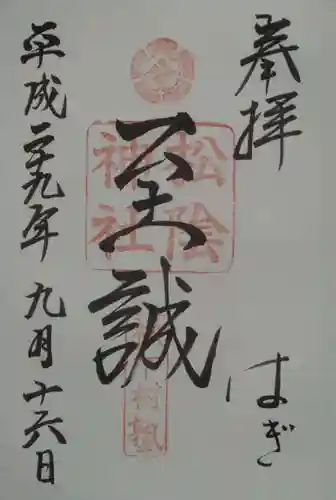 奉拝
はぎ
至誠
松陰神社
平成二十九年九月十六日